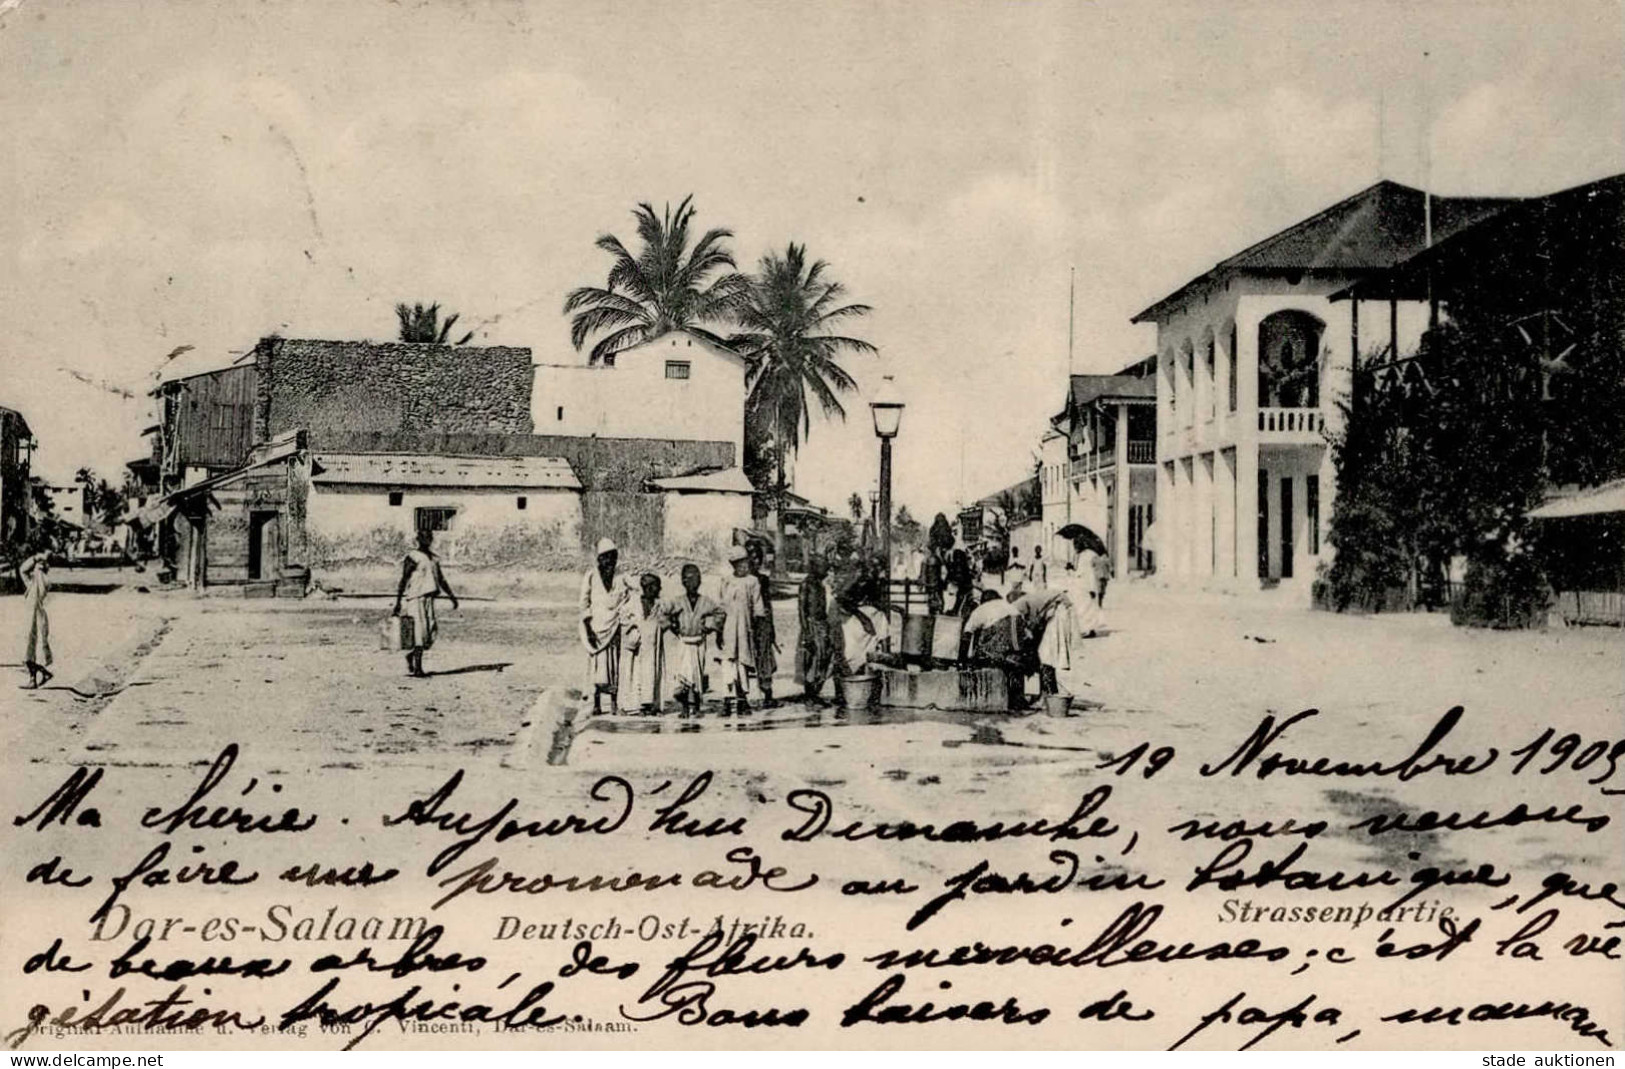 19 Novembre 1905
Ma chérie. Aujourd'hui Dimanche, nous venons
de faire une promenade au jardin botanique, que
Dar-es-Salaam. Deutsch-Ost-Afrika. Strassenpartie.
de beaux arbres, des fleurs merveilleuses; c'est la vé
gétation tropicale. Bons baisers de papa, maman
Original-Aufnahme u. Verlag von C. Vincenti, Dar-es-Salaam.
stade auktionen